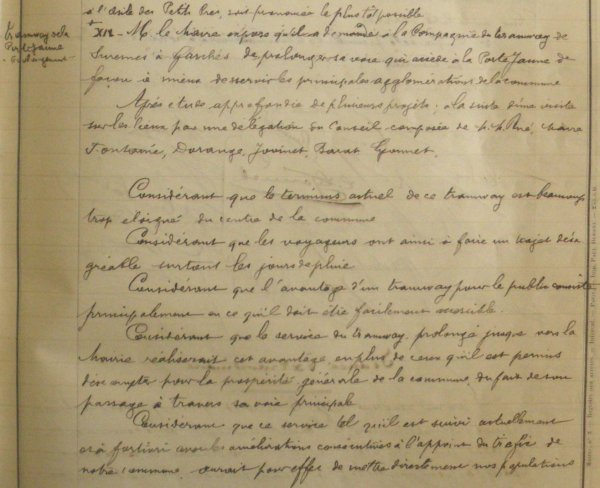 à l'asile des Petits Prés, soit prononcée le plus tôt possible
Tramways de la
Porte Jaune
Prolongement
XII - M. le Maire expose qu'il a demandé à la Compagnie du tramway de
Suresnes à Garches de prolonger sa voie qui accède à la Porte Jaune de
façon à mieux desservir les principales agglomérations de la commune
Après étude approfondie de plusieurs projets, à la suite d'une visite
sur les lieux par une délégation du Conseil composée de M.M. René, Maire
Fontaine, Dorange, Jovinet, Barat,
Considérant que le terminus actuel de ce tramway est beaucoup
trop éloigné du centre de la commune
Considérant que les voyageurs ont ainsi à faire un trajet désa
gréable surtout les jours de pluie
Considérant que l'avantage d'un tramway pour le public consiste
principalement en ce qu'il doit être facilement accessible.
Considérant que le service du tramway, prolongé jusque vers la
Mairie réaliserait cet avantage, en plus de ceux qu'il est permis
d'escompter pour la prospérité générale de la commune, du fait de son
passage à travers sa voie principale
Considérant que ce service tel qu'il est suivi actuellement
et à fortiori avec les améliorations consécutives à l'appoint du trafic de
notre commune aurait pour effet de mettre directement nos populations